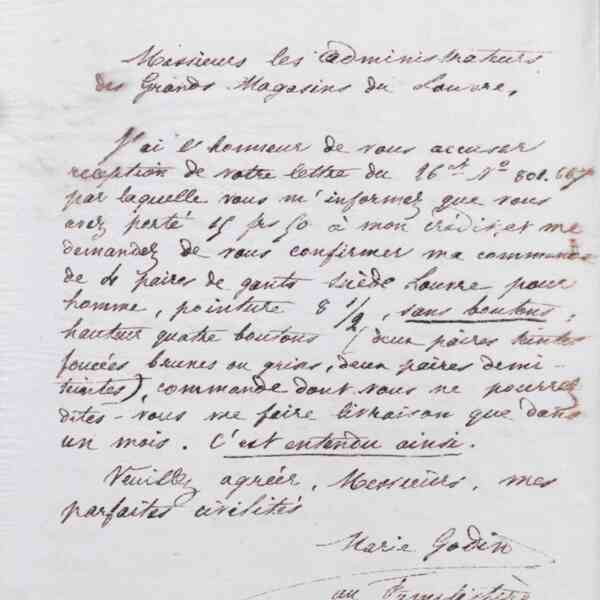 Messieurs les administrateurs
des Grands Magasins du Louvre,
J'ai l'honneur de vous accuser
reception de votre lettre du 26 ct No 801.667
par laquelle vous m'informez que vous
avez porté 15 frs 50 à mon crédit, et me
demandez de vous confirmer ma commande
de 4 paires de gants suède Louvre pour
homme, pointure 8 1/2, sans boutons,
hauteur quatre boutons (deux paires teintes
foncées brunes ou grises, deux paires demi-
teintes), commande dont vous ne pourrez
dites-vous me faire livraison que dans
un mois. C'est entendu ainsi.
Veuillez agréer, Messieurs, mes
parfaites civilités
Marie Godin
au Familistère